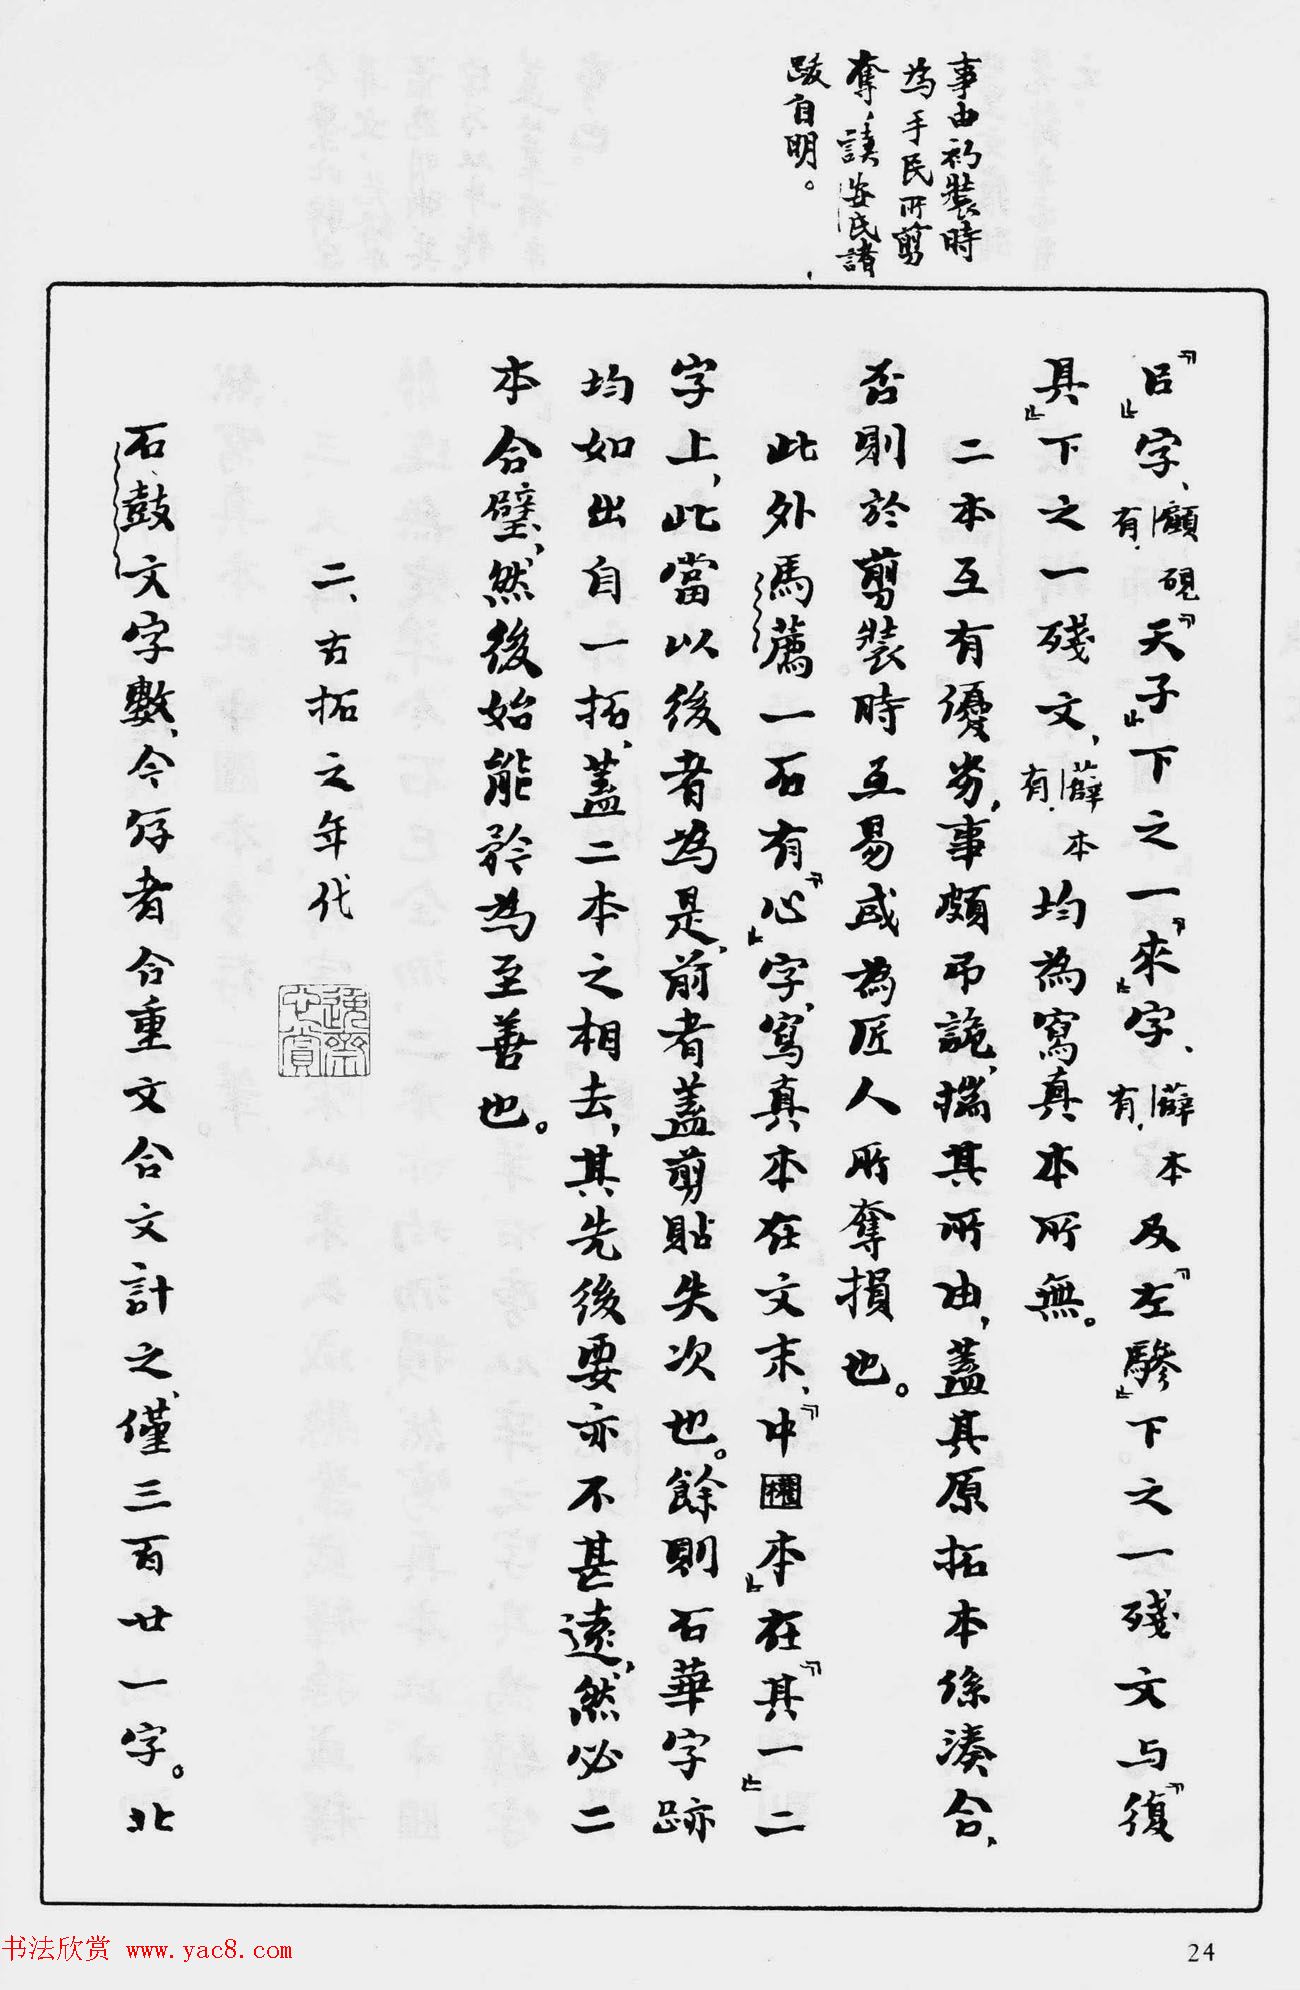 事由初裝時
為手民所剪
奪,讀安氏諸
跋自明。
『㠯』字、顧硯有.『天子』下之一『來』字、薛本有.及『左驂』下之一殘文与『復
具』下之一殘文,薛本有.均為寫真本所無。
二本互有優劣,事頗弔詭,揣其所由,蓋其原拓本係湊合,
否則於剪裝時互易或為匠人所奪損也。
此外馬薦一石有『心』字,寫真本在文末,『中權本』在『其一』二
字上,此當以後者為是,前者蓋剪貼失次也。餘則石華字跡
均如出自一拓,蓋二本之相去,其先後要亦不甚遠,然必二
本合璧,然後始能矜為至善也。
二、古拓之年代
石鼓文字數,今存者合重文合文計之,僅三百廿一字。北
书法欣赏 www.yac8.com
24